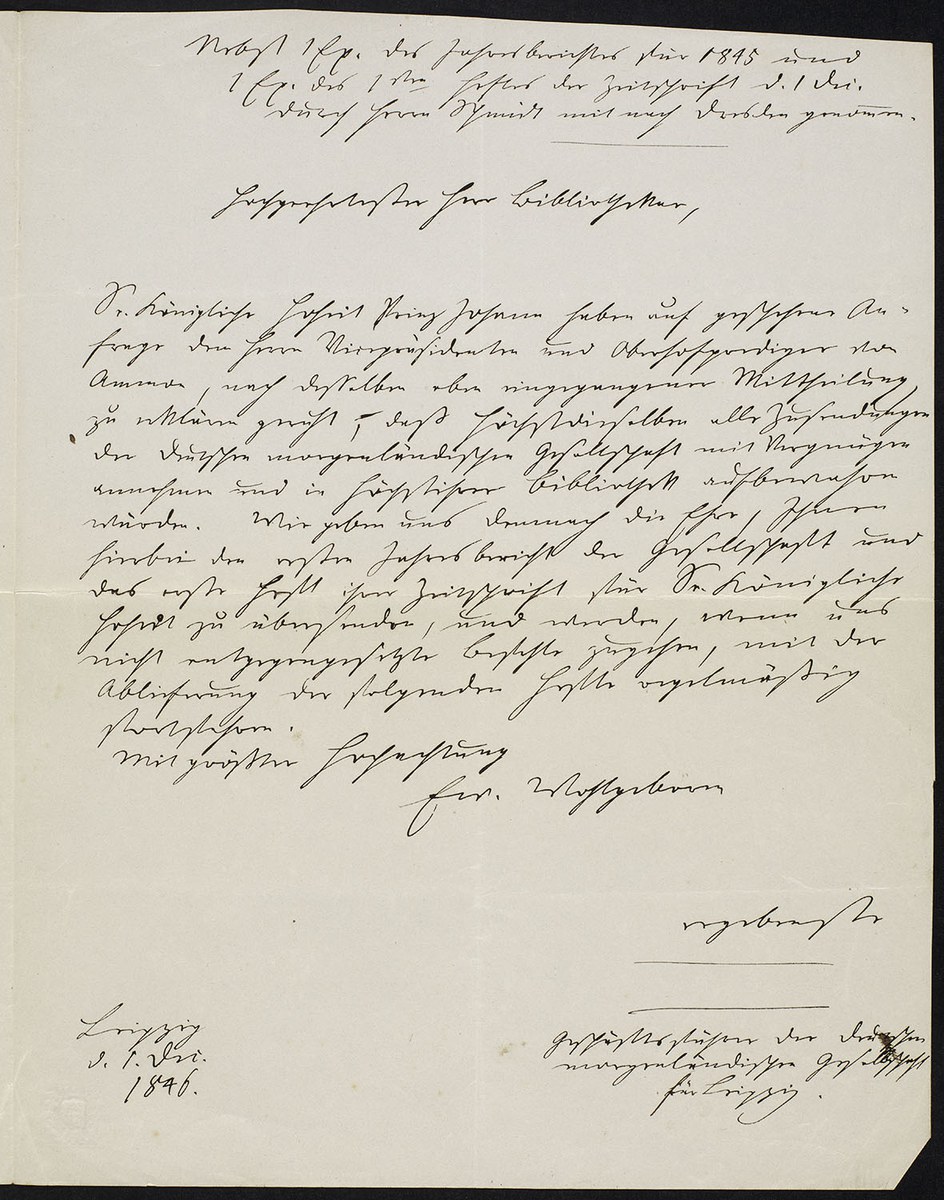 Nebst 1 Ex. des Jahresberichtes für 1845 und
1 Ex. des 1sten Heftes der Zeitschrift d. 1 Dec.
durch Herrn Schmidt mit nach Dresden genommen.
Hochgeehrtester Herr Bibliothekar,
Se. Königliche Hoheit Prinz Johann haben auf geschehene An-
frage des Herrn Vicepräsidenten und Oberhofprediger von
Ammon, nach desselben eben eingegangener Mittheilung,
zu erklären geruht, daß Höchstdieselben alle Zusendungen
der Deutschen morgenländischen Gesellschaft mit Vergnügen
annehmen und in Höchstihrer Bibliothek aufbewahren
würden. Wir geben uns demnach die Ehre, Ihnen
hierbei den ersten Jahresbericht der Gesellschaft und
das erste Heft ihrer Zeitschrift für Se. Königliche
Hoheit zu übersenden, und werden, wenn uns
nicht entgegengesetzte Befehle zugehen, mit der
Ablieferung der folgenden Hefte regelmäßig
fortfahren.
Mit größter Hochachtung
Ew. Wohlgeboren
ergebenste
Leipzig
d. 1. Dec.
1846.
Geschäftsführer der Deutschen
morgenländischen Gesellschaft
für Leipzig.